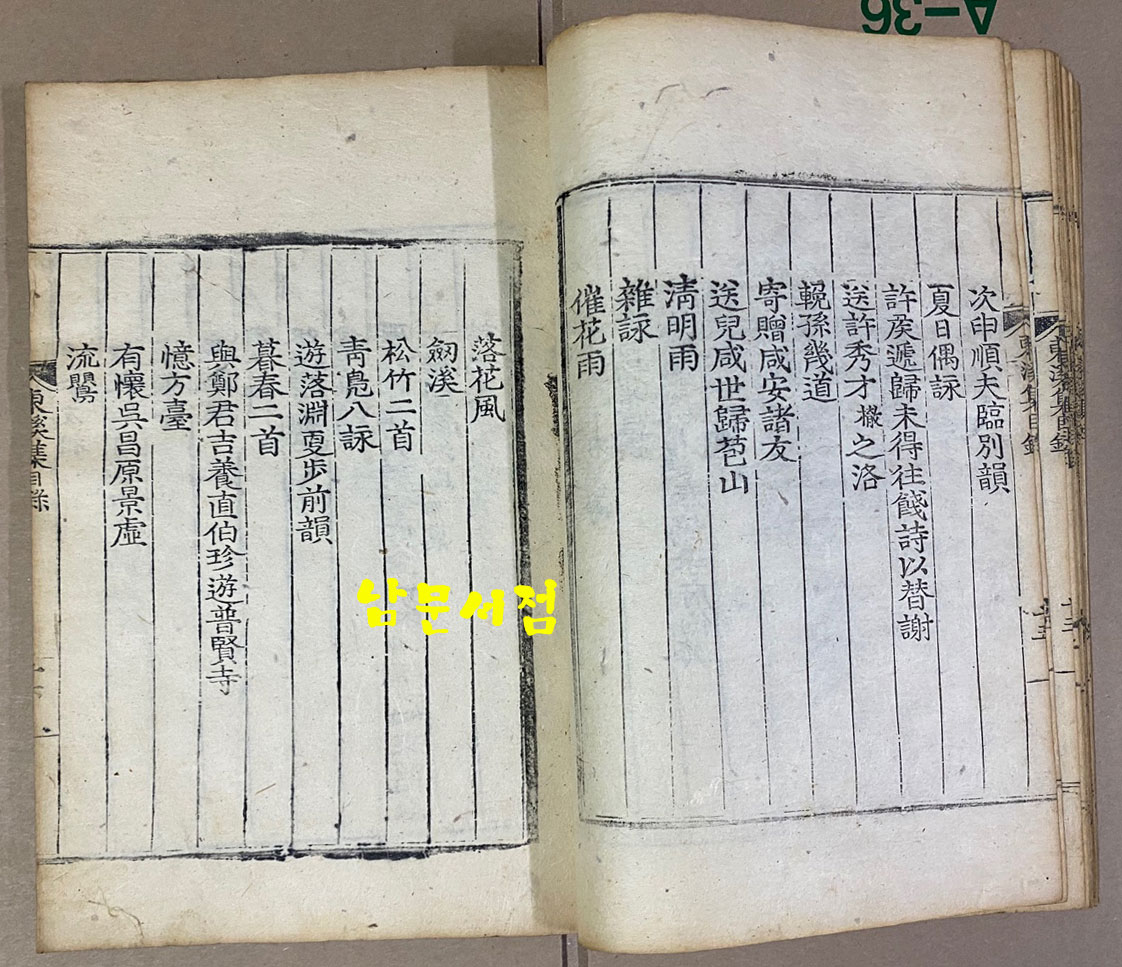 次申順夫臨別韻
夏日偶詠
許侯遞歸未得往餞詩以替謝
送許秀才㰒之洛
輓孫幾道
寄贈咸安諸友
送兒咸世歸苞山
淸明雨
雜詠
催花雨
落花風
劒溪
松竹二首
靑鳧八詠
遊落淵更步前韻
暮春二首
與鄭君吉養直伯珍遊普賢寺
憶方臺
有懷吳昌原景虛
流鸎
東溪集目錄
남문서점
A-36